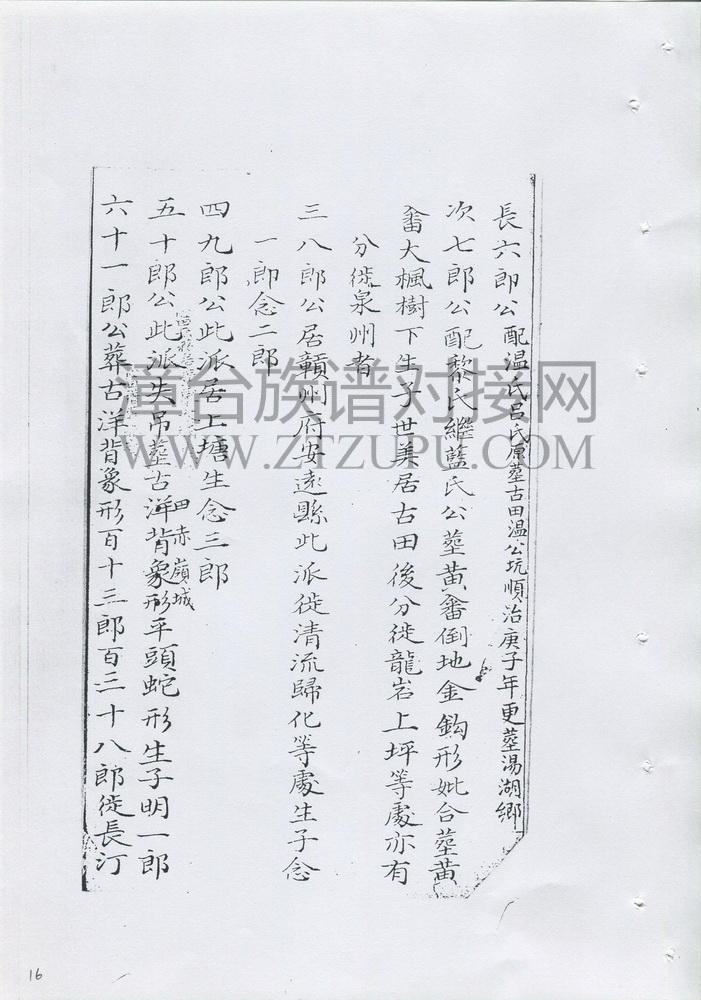 長六郎公配温氏呂氏原塟古田溫公坑順治庚子年更塟湯湖鄉
次七郎公配黎氏繼藍氏公塟黃畬倒地金鈎形妣合塟黃
畬大楓樹下生子世美居古田後分徙龍岩上坪等處亦有
分徙泉州者
三八郎公居贛州府安遠縣此派徙清流歸化等處生子念
一郎念二郎
四九郎公此派居上塘生念三郎
田赤嶺城
五十郎公此派失吊塟古洋背象形平頭蛇形生子明一郎
六十一郎公葬古洋背象形百十三郎百三十八郎徙長汀
漳台族谱对接网
WWW.ZTZUPU.COM
16